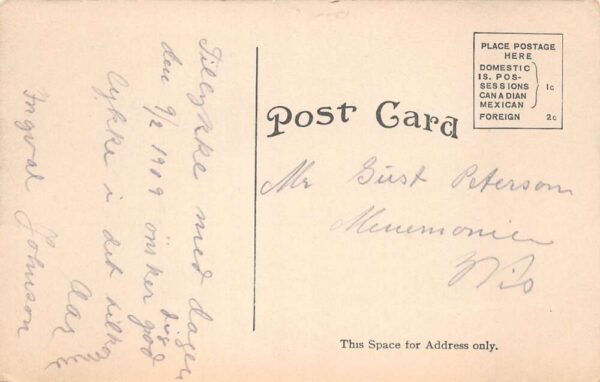 Tillykke med dagen
den 9/2 1909 önsker dig
lykke i det
god
Aar
Ingval Johnson
Post Card
PLACE POSTAGE
HERE
DOMESTIC
IS. POS-
SESSIONS
CANADIAN
MEXICAN
1c
FOREIGN 2c
Mr Gust Peterson
Menemonie
Wis
This Space for Address only.